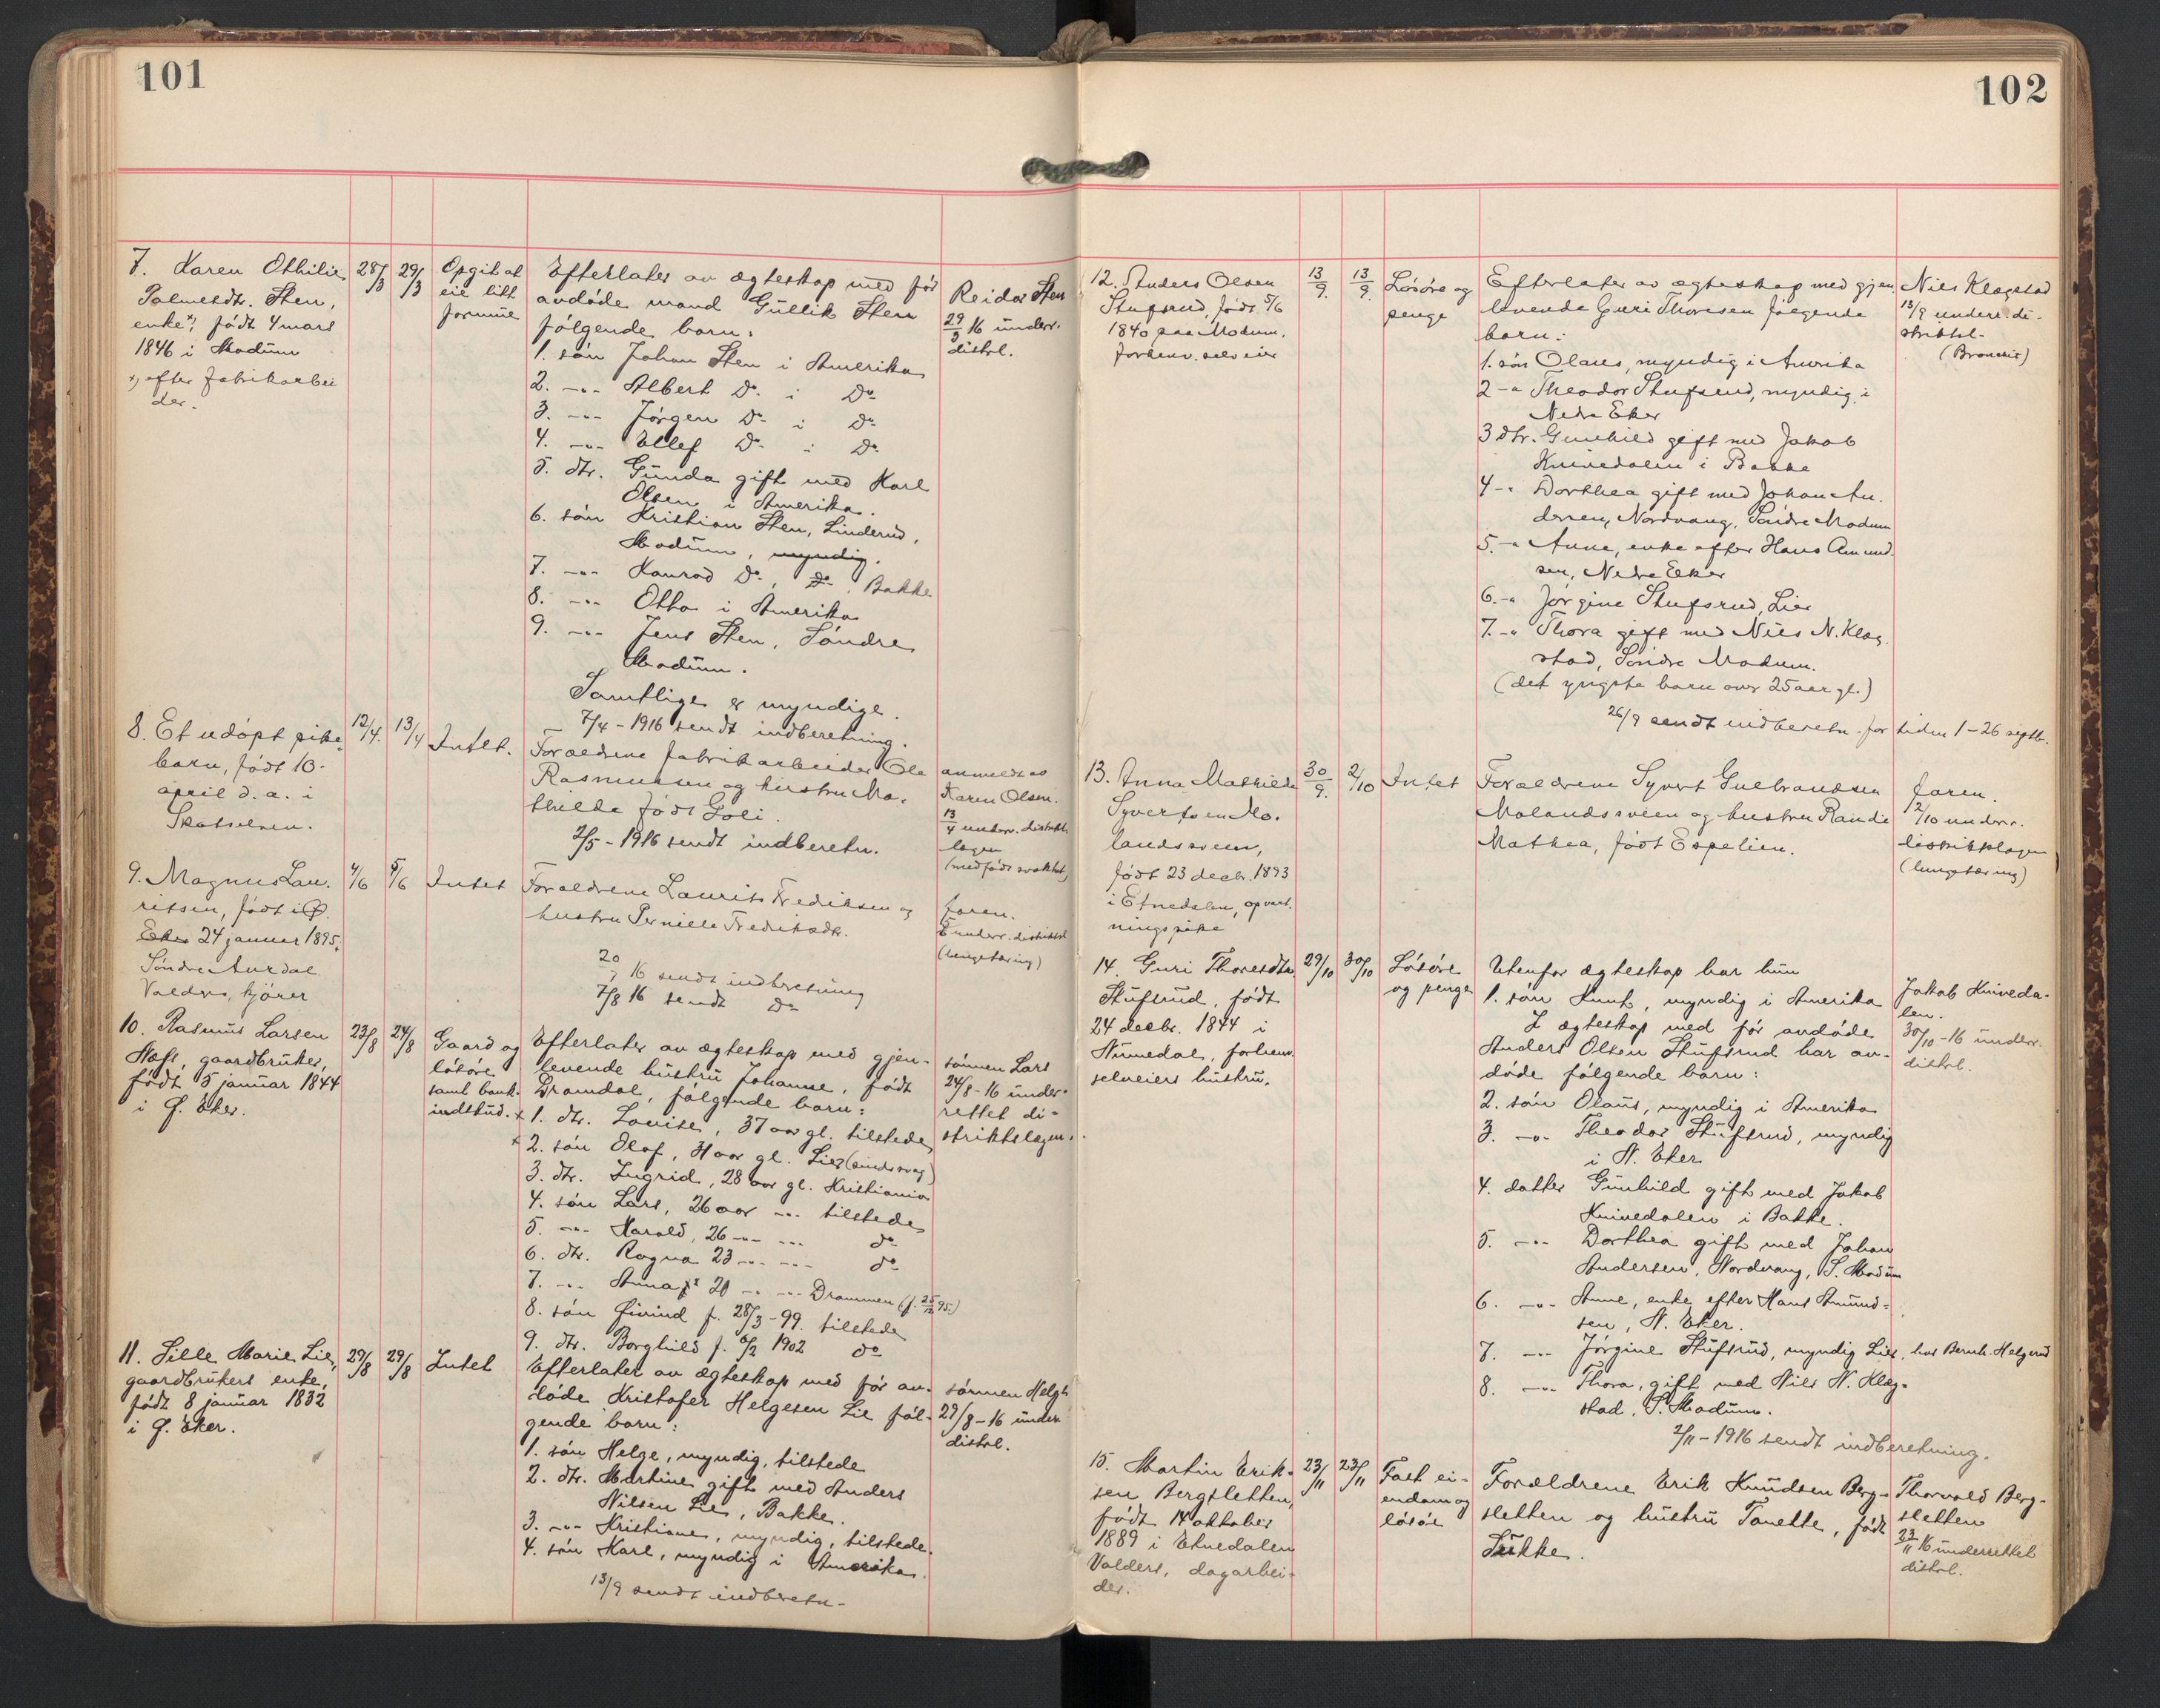 101
7. Karen Othilie
Palmesdtr. Sten,
enke x) født 4 mars
1846 i Modum
x) efter fabrikarbei
der.
28/3
29/3
Opgit at
eie litt
formue
Efterlater av ægteskap med før
avdøde mand Gullik Sten
følgende barn:
1. søn Johan Sten i Amerika
2. -"- Albert Do. i Do
3. -"- Jørgen Do i Do
4. -"- Ellef Do. i Do.
5. dtr. Gunda gift med Karl
Olsen i Amerika.
6. søn Kristian Sten, Linderud,
Modum, myndig.
7. -"- Konrad Do, Do. Bakke
8. -"- Otto i Amerika
9. -"- Jens Sten, Søndre
Modum.
Samtlige er myndige.
7/4 - 1916 sendt indberetning.
Reidar Sten
29/3 16 underr.
distrl.
8. Et udøpt pike
barn, født 10.
april d. a. i
Skotselven.
12/4.
13/4
Intet.
Forældrene fabrikarbeider Ole
Rasmussen og hustru Ma-
thilde født Goli.
2/5 - 1916 sendt indberetn.
anmeldt av
Karen Olsen.
13/4 underr. distrikts
lægen
(medfødt svakhet)
9. Magnus Lau-
ritsen, født i Ø.
Eker 24 januar 1895,
Søndre Aurdal
Valdres, kjører
4/6
5/6
Intet
Forældrene Laurits Frediksen og
hustru Pernille Fredriksdtr.
20/7 16 sendt indberetning
7/8 16 sendt Do
faren.
5 underr. distriktsl
(lungetæring)
10. Rasmus Larsen
gaardbruker,
født 5 januar 1844
i Ø. Eker.
23/8
24/8
Gaard og
løsøre
samt bank-
indskud.
Efterlater av ægteskap med gjen-
levende hustru Johanne, født
Dramdal, følgende barn:
x 1. dtr. Lovise, 37 aar gl. tilstede
x 2. søn Olaf, 31 aar gl. Lier (sindssvag)
3. dtr. Ingrid, 28 aar gl. Kristiania
4. søn Lars, 26 aar -"- tilstede
5. -"- Harald, 26 -"- -"- do
6. dtr. Ragna 23 -"- -"- do
7. -"- Anna 20 -"- -"- Drammen (f. 25/12 95.)
8. søn Øivind f. 28/3 - 99. tilstede
9. dtr. Borghild f. 6/2 1902 do
sønnen Lars
24/8 - 16 under-
rettet di-
striktslægen.
11. Sille Marie Lie,
gaardbrukers enke,
født 8 januar 1832
i Ø. Eker.
29/8
29/8
Intet
Efterlater av ægteskap med før av-
døde Kristofer Helgesen Lie føl-
gende barn:
1. søn Helge, myndig, tilstede
2. dtr. Martine gift med Anders
Nilsen Lie, Bakke.
3. -"- Kristiane, myndig, tilstede.
4. søn Karl, myndig i Amerika.
13/9 sendt indberetn-
sønnen Helge
29/8 - 16 underr
distrl.
102
12. Anders Olsen
Stufsrud, født 5/6
1840 paa Modum.
forhenv. selveier
13/9.
13/9.
Løsøre og
penge
Efterlater av ægteskap med gjen-
levende Guri Thoresen følgende
barn:
1. søn Olaus, myndig i Amerika
2 -" Theodor Stufsrud, myndig i
Nedre Eker
3 dtr. Gunhild gift med Jakob
Knivedalen i Bakke
4 -" Dorthea gift med Johan An-
dersen, Nordvang, Søndre Modum
5. -" Anne, enke efter Hans Amund-
sen, Nedre Eker
6. -" Jørgine Stufsrud, Lier
7. -" Thora gift med Niels N. Klog-
stad, Søndre Modum.
(det yngste barn over 25 aar gl.)
26/9 sendt indberetn. for tiden 1-26 septb.
Niels Klogstad
13/9 underr. di-
striktsl-
(Bronkit)
13. Anna Mathilde
Syvertsen Mo-
landsveen,
født 23 decb. 1893
i Etnedalen, opvart-
ningspike
30/9.
2/10
Intet
Forældrene Syvert Gulbrandsen
Molandsveen og hustru Randi
Mathea, født Espelien.
faren.
2/10 underr.
distriktslægen
(lungetæring)
14. Guri Thoresdtr.
Stufsrud, født
24 decbr. 1844 i
Numedal, forhenv.
selveiers hustru.
29/10
30/10
Løsøre
og penge
Utenfor ægteskap har hun
1. søn Knut, myndig i Amerika
I ægteskap med før avdøde
Anders Olsen Stufsrud har av-
døde følgende barn:
2. søn Olaus, myndig i Amerika
3. -"- Theodor Stufsrud, myndig
i N. Eker
4. datter Gunhild gift med Jakob
Knivedalen i Bakke.
5. -"- Dorthea gift med Johan
Andersen, Nordvang, S. Modum
6. -"- Anne, enke efter Hans Amund-
sen, N. Eker.
7. -"- Jørgine Stufsrud, myndig Lier, hos Bernh. Helgerud
8. -"- Thora, gift med Nils N. Klog-
stad, S. Modum.
2/11 - 1916 sendt indberetning.
Jakob Kniveda-
len.
30/10 - 16 underr.
distrl.
15. Martin Erik-
sen Bergsletten,
født 14 oktober
1889 i Etnedalen
Valders, dagarbei-
der.
23/11
23/11
Fast ei-
endom og
løsøre
Forældrene Erik Knudsen Berg-
sletten og hustru Tonette, født
Lukke.
Thorvald Berg-
sletten
23/11 16 underrettet
distrl.